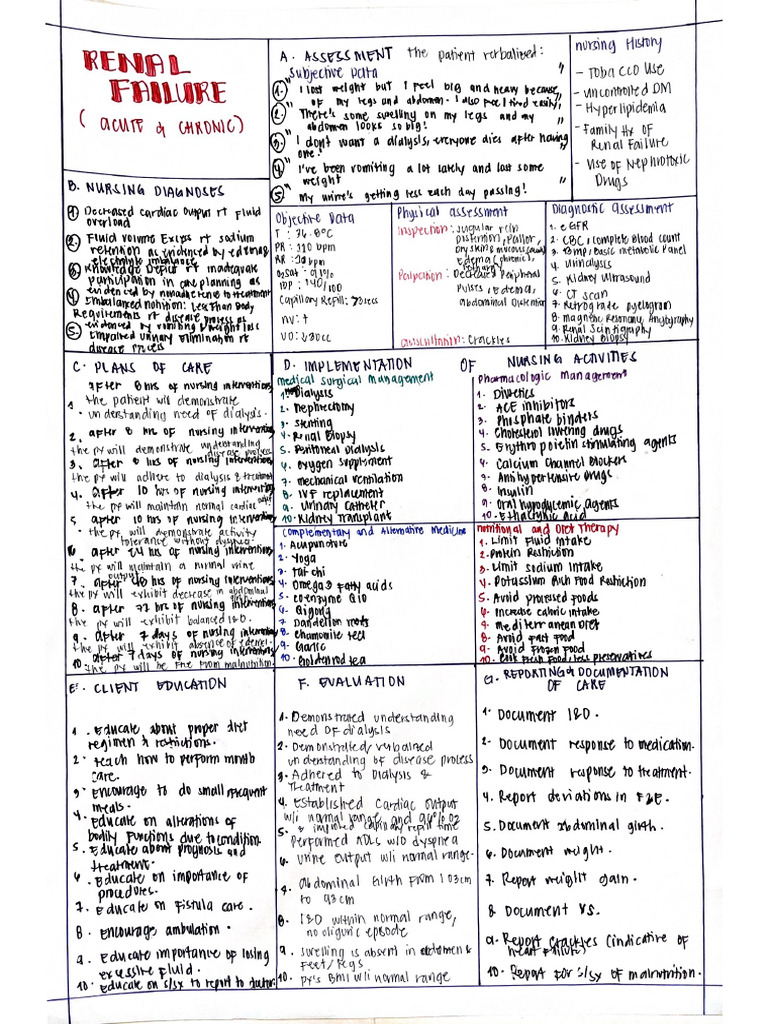 RENAL
FAILURE
( ACUTE & CHRONIC)
A. ASSESSMENT the patient verbalized:
Subjective Data
1. "I lost weight but I feel big and heavy because
of my legs and abdomen. I also feel tired easily."
2. "There's some swelling on my legs and my
abdomen looks so big!"
3. "I don't want a dialysis, everyone dies after having
one."
4. "I've been vomiting a lot lately and lost some
weight"
5. "My urine's getting less each day passing!"
Nursing History
- Tobacco Use
- Uncontrolled DM
- Hyperlipidemia
- Family Hx of
Renal Failure
- Use of Nephrotoxic
Drugs
B. NURSING DIAGNOSES
1. Decreased cardiac output rt Fluid
overload
2. Fluid volume Excess rt sodium
retention as evidenced by edema,
electrolyte imbalance
3. Knowledge Deficit rt inadequate
participation in care planning as
evidenced by nonadherence to treatment
4. Imbalanced nutrition: Less than Body
Requirements rt disease process as
evidenced by vomiting & weight loss
5. Impaired urinary elimination rt
disease process
Objective Data
PR : 110 bpm
O2Sat : 91%
BP : 140/100
Capillary Refill: >3secs
NV: +
UO: <30cc
Physical assessment
Inspection: Jugular vein
Distention, Pallor,
Dry skin & mucous,
Edema
Palpation: Decrease Peripheral
Pulses, Edema,
abdominal Distention
Auscultation: Crackles
Diagnostic assessment
1. eGFR
2. CBC, Complete Blood Count
3. BMP, Basic metabolic Panel
4. Urinalysis
5. Kidney Ultrasound
6. CT scan
7. Retrograde pyelogram
8. Magnetic Resonance Angiography
9. Renal Scintigraphy
10. Kidney Biopsy
C. PLANS OF CARE
1. after 8 hrs of nursing interventions
the patient will demonstrate
understanding need of dialysis.
2. after 8 hrs of nursing interventions
the px will demonstrate understanding
disease process
3. after 8 hrs of nursing interventions
the px will adhere to dialysis & treatment
4. after 10 hrs of nursing interventions
the px will maintain normal cardiac output
5. after 10 hrs of nursing interventions
the px will demonstrate activity
tolerance without dyspnea.
6. after 24 hrs of nursing interventions
the px will maintain a normal urine
output
7. after 48 hrs of nursing interventions
the px will exhibit decrease in abdominal
8. after 72 hrs of nursing interventions
the px will exhibit balanced I&O.
9. after 7 days of nursing interventions
the px will exhibit absence of edema.
10. after 7 days of nursing interventions
the px will be free from malnutrition.
D. IMPLEMENTATION OF NURSING ACTIVITIES
medical surgical management
1. Dialysis
2. Nephrectomy
3. Stenting
4. Renal Biopsy
5. Peritoneal Dialysis
6. Oxygen supplement
7. mechanical ventilation
8. IVF replacement
9. Urinary Catheter
10. Kidney Transplant
pharmacologic management
1. Diuretics
2. ACE inhibitors
3. Phosphate binders
4. Cholesterol lowering drugs
5. Erythropoietin stimulating agents
4. Calcium Channel Blockers
7. Antihypertensive Drugs
8. Insulin
9. Oral hypoglycemic agents
10. Ethacrynic Acid
Complementary and Alternative Medicine
1. Acupuncture
2. Yoga
3. Tai chi
4. Omega 3 Fatty acids
5. Coenzyme Q10
6. Qigong
7. Dandelion roots
8. Chamomile tea
9. Garlic
10. Goldenrod tea
nutritional and Diet Therapy
1. Limit Fluid Intake
2. Protein Restriction
3. Limit Sodium Intake
4. Potassium Rich Food Restriction
5. Avoid processed Foods
6. Increase caloric intake
7. mediterranean Diet
8. Avoid Fast Food
9. Avoid Frozen Food
10. Cook Fresh Food, less preservatives
E. CLIENT EDUCATION
1. Educate about proper diet
regimen & restrictions.
2. teach how to perform mouth
care.
3. Encourage to do small frequent
meals.
4. Educate on alterations of
bodily functions due to condition.
5. Educate about prognosis and
treatment.
6. Educate on importance of
procedures.
7. Educate on Fistula care.
8. Encourage ambulation.
9. Educate importance of losing
excessive fluid.
10. Educate on s/sx to report to doctor.
F. EVALUATION
1. Demonstrated understanding
need of dialysis
2. Demonstrated/verbalized
understanding of disease process
3. Adhered to Dialysis &
Treatment
4. Established Cardiac output
w/i normal range and 94% O2
& improved capillary refill time
5. Performed ADLs w/o dyspnea
6. urine output w/i normal range.
7. abdominal Girth from 103cm
to 93cm
8. I&O within normal range,
no oliguric episode
9. swelling is absent in abdomen &
Feet/legs
10. px's BMI w/i normal range
G. REPORTING & DOCUMENTATION
OF CARE
1. Document I&O.
2. Document response to medication.
3. Document response to treatment.
4. Report deviations in F&E.
5. Document abdominal girth.
6. Document weight.
7. Report weight gain.
8. Document VS.
9. Report crackles (indicative of
heart failure)
10. Report for s/sx of malnutrition.